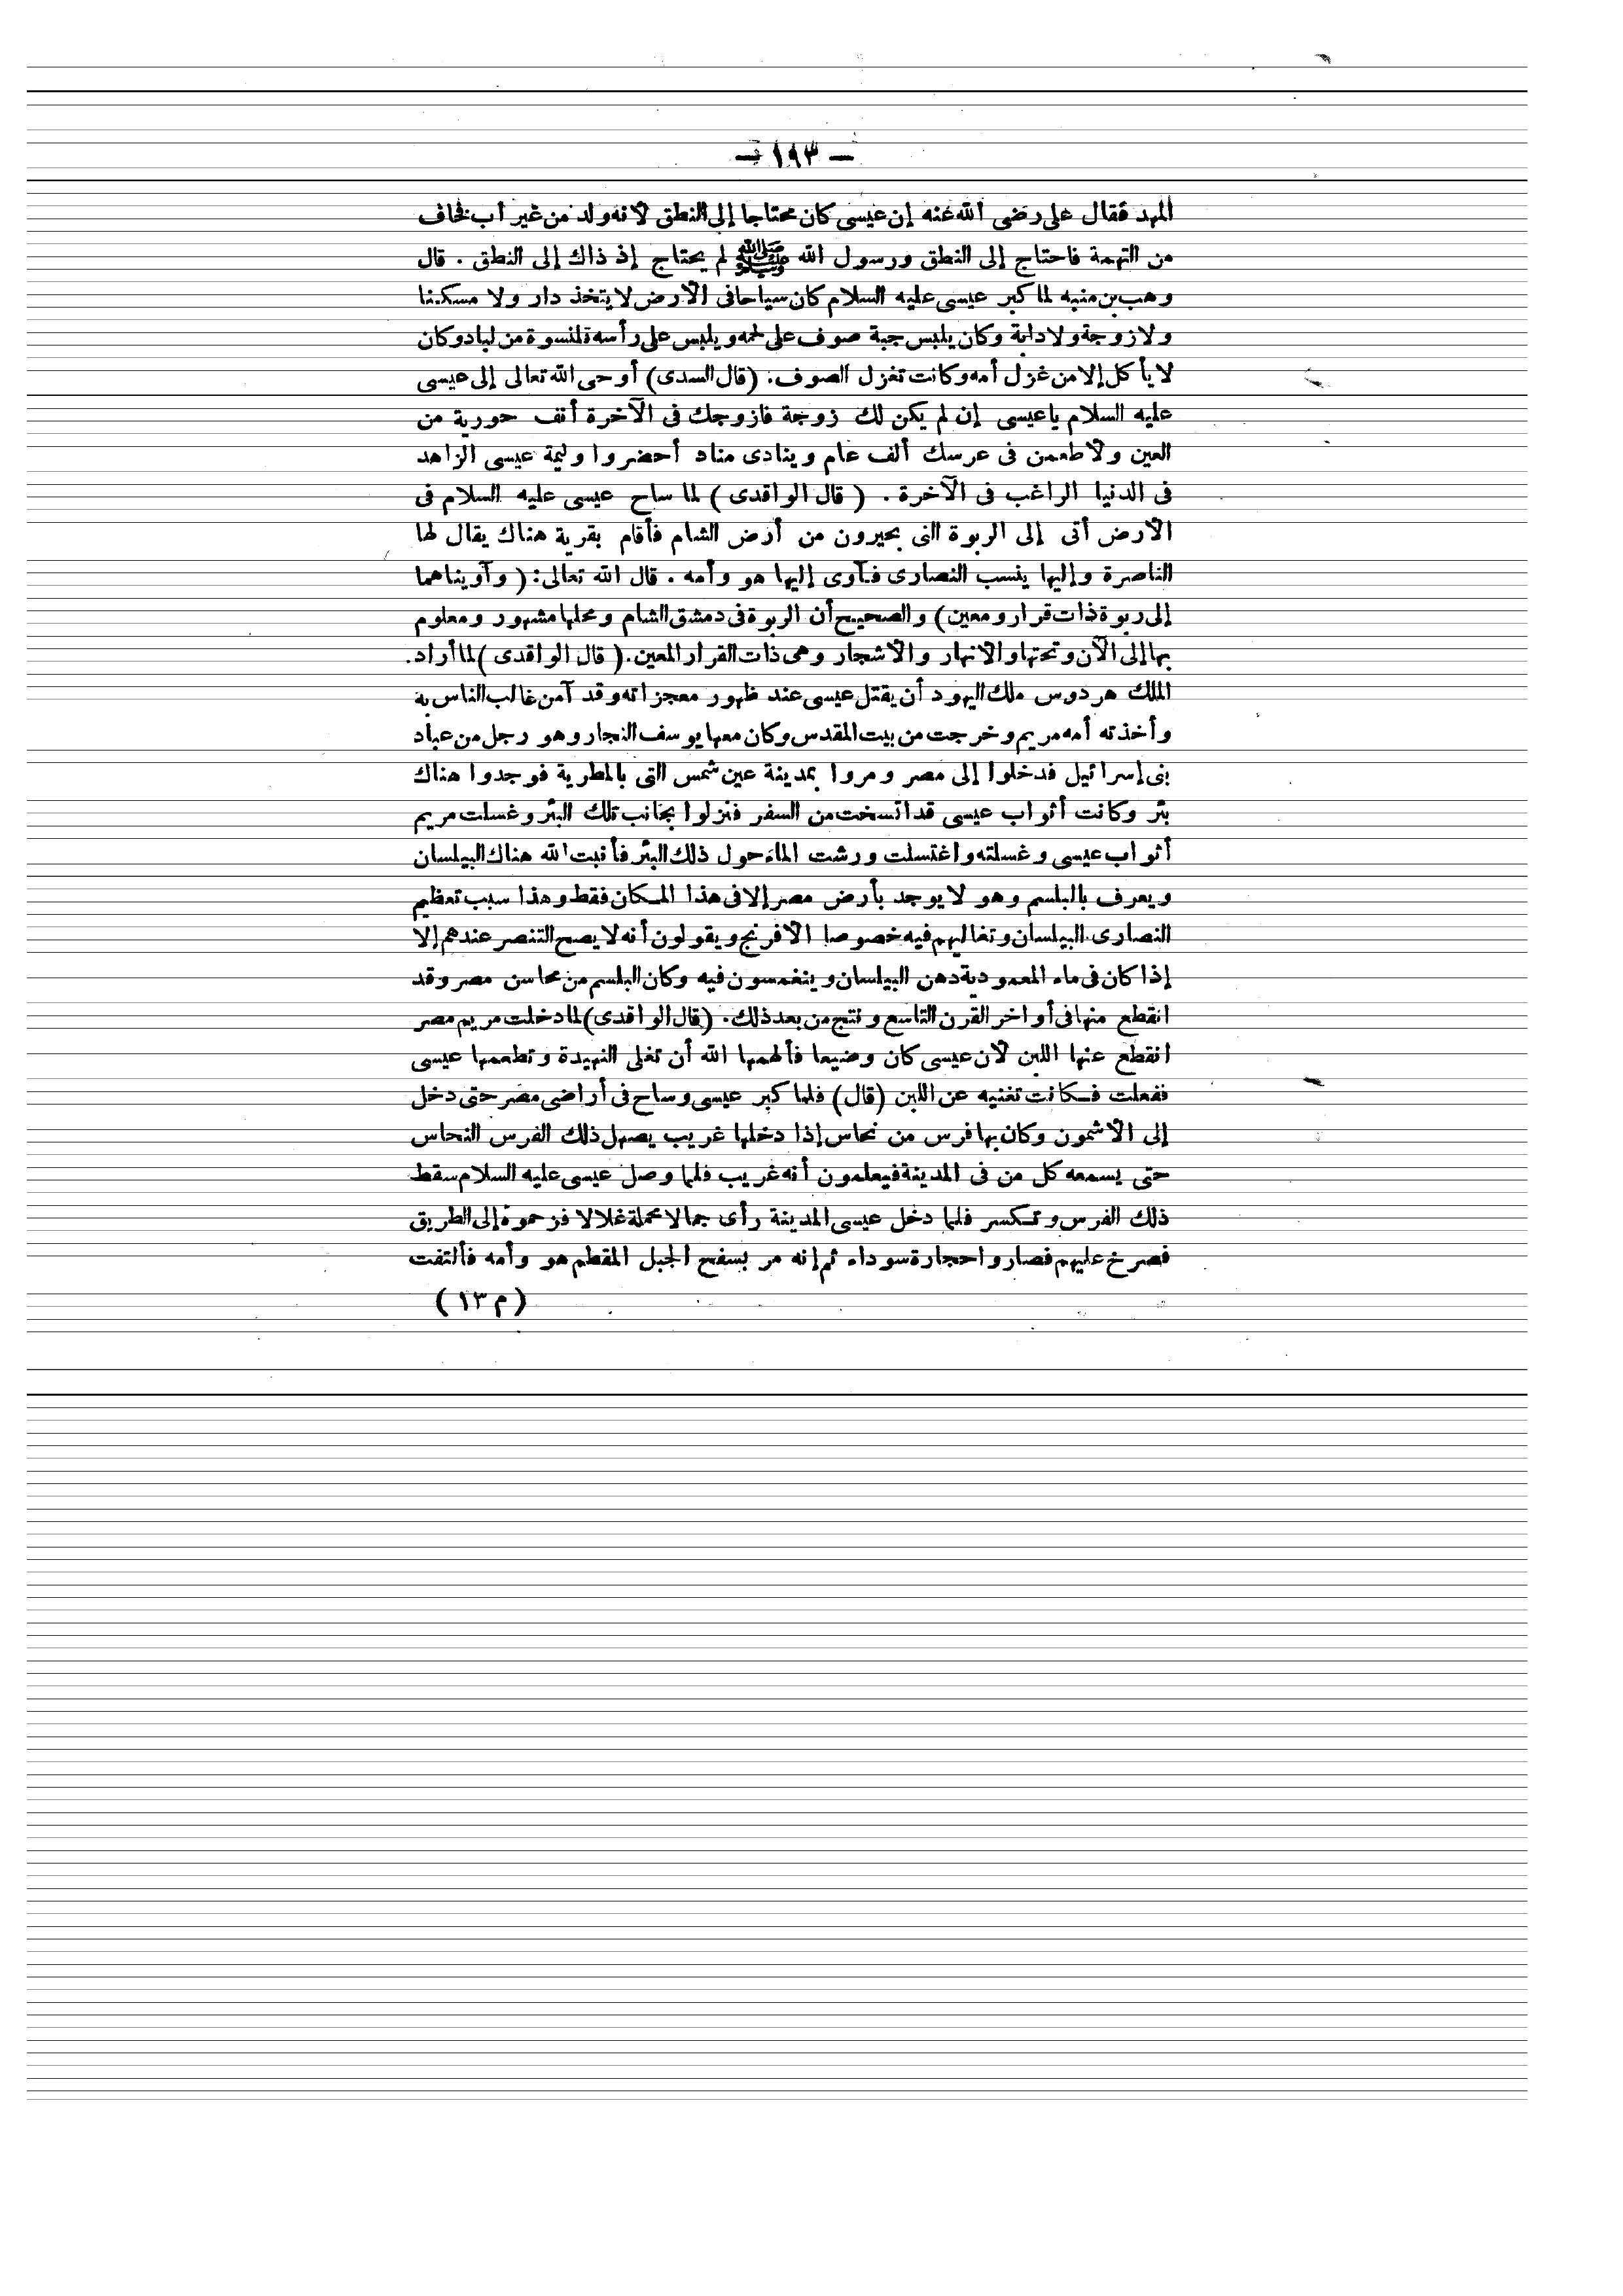 — ١٩٣ —
المهد فقال على رضى الله عنه إن عيسى كان محتاجا إلى النطق لأنه ولد من غير أب فخاف
من التهمة فاحتاج إلى النطق ورسول الله ﷺ لم يحتاج إذ ذاك إلى النطق . قال
وهب بن منبه لما كبر عيسى عليه السلام كان سياحا فى الأرض لا يتخذ دار ولا مسكنا
ولا زوجة ولا دابة وكان يلبس جبة صوف على لحمه ويلبس على رأسه قلنسوة من لباد وكان
لا يأكل إلا من غزل أمه وكانت تغزل الصوف. (قال السدى) أوحى الله تعالى إلى عيسى
عليه السلام ياعيسى إن لم يكن لك زوجة فازوجك فى الآخرة ألف حورية من
العين ولأطعمن فى عرسك ألف عام وينادى مناد أحضروا وليمة عيسى الزاهد
فى الدنيا الراغب فى الآخرة . ( قال الواقدى ) لما ساح عيسى عليه السلام فى
الأرض أتى إلى الربوة التى بحيرون من أرض الشام فأقام بقرية هناك يقال لها
الناصرة وإليها ينسب النصارى فآوى إليها هو وأمه . قال الله تعالى: ( وآويناهما
إلى ربوة ذات قرار ومعين ) والصحيح أن الربوة فى دمشق الشام ومحلها مشهور ومعلوم
بها إلى الآن وتحتها والانهار والأشجار وهى ذات القرار المعين. ( قال الواقدى ) لما أراد.
الملك هردوس ملك اليهود أن يقتل عيسى عند ظهور معجزاته وقد آمن غالب الناس به
وأخذته أمه مريم وخرجت من بيت المقدس وكان معها يوسف النجار وهو رجل من عباد
بنى إسرائيل فدخلوا إلى مصر ومروا بمدينة عين شمس التى بالمطرية فوجدوا هناك
بئر وكانت أثواب عيسى قد اتسخت من السفر فنزلوا بجانب تلك البئر وغسلت مريم
أثواب عيسى وغسلته واغتسلت ورشت الماء حول ذلك البئر فأنبت الله هناك البيلسان
ويعرف بالبلسم وهو لا يوجد بأرض مصر إلا فى هذا المكان فقط وهذا سبب تعظيم
النصارى البيلسان وتغاليهم فيه خصوصا الافرنج ويقولون أنه لا يصح التنصر عندهم إلا
إذا كان فى ماء المعمودية دهن البيلسان وينغمسون فيه وكان البلسم من محاسن مصر وقد
انقطع منها فى أواخر القرن التاسع ونتج من بعد ذلك. (قال الواقدى) لما دخلت مريم مصر
انقطع عنها اللبن لأن عيسى كان وضيعا فألهمها الله أن تغلى النهيدة وتطعمها عيسى
ففعلت فكانت تغنيه عن اللبن (قال) فلما كبر عيسى وساح فى أراضى مصر حتى دخل
إلى الأشمون وكان بها فرس من نحاس إذا دخلها غريب يصهل ذلك الفرس النحاس
حتى يسمعه كل من فى المدينة فيعلمون أنه غريب فلما وصل عيسى عليه السلام سقط
ذلك الفرس وتكسر فلما دخل عيسى المدينة رأى جمالا محملة غلالا فزحموه إلى الطريق
فصرخ عليهم فصاروا حجارة سوداء ثم إنه مر بسفح الجبل المقطم هو وأمه فألتفت
( م ١٣ )